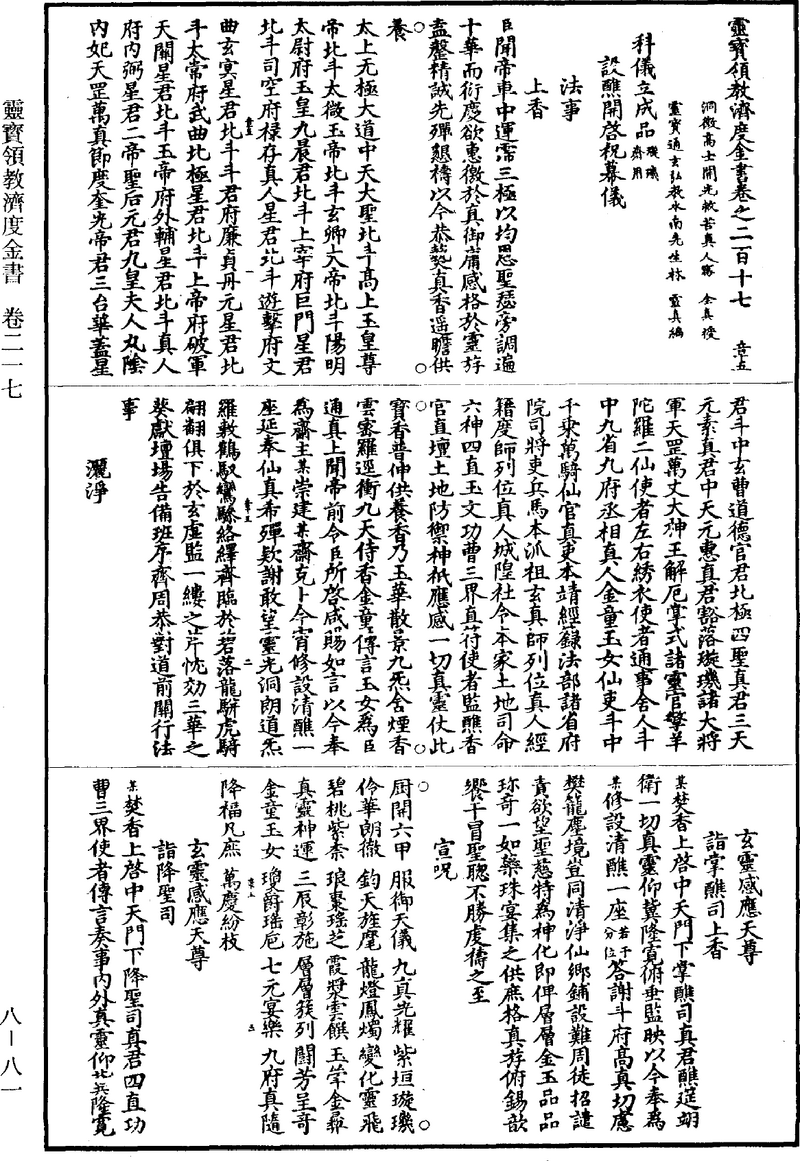 靈寶領教濟度金書卷之二百十七 章五
洞微高士開光救苦真人甯 全真 授
靈寶通玄弘教水南先生林 靈真 編
科儀立成品 璇璣齋用
設醮開啓祝幕儀
法事
上香
臣聞帝車中運霈三極以均恩聖瑟旁調遍
十華而衍慶欲惠徼於真御蕭感格於靈斿
盍罄精誠先殫懇禱以今恭爇真香遥瞻供
養
太上無極大道中天大聖北斗高上玉皇尊
帝北斗太微玉帝北斗玄卿大帝北斗陽明
太尉府玉皇九晨君北斗上宰府巨門星君
北斗司空府禄存真人星君北斗遊擊府文
曲玄冥星君北斗斗君府廉貞丹元星君北
斗太常府武曲北極星君北斗上帝府破軍
天關星君北斗玉帝府外輔星君北斗真人
府内弼星君二帝聖后元君九皇夫人丸陰
内妃天罡萬真節度奎光帝君三台華蓋星
君斗中玄曹道德官君北極四聖真君三天
元素真君中天元惠真君豁落璇璣諸大將
軍天罡萬丈大神王解厄掌式諸靈官擎羊
陀羅二仙使者左右綉衣使者通事舍人斗
中九省九府丞相真人金童玉女仙吏斗中
千乘萬騎仙官真吏本靖經籙法部諸省府
院司將吏兵馬本派祖玄真師列位真人經
籍度師列位真人城隍社令本家土地司命
六神四直玉文功曹三界直符使者監醮香
官直壇土地防禦神祇應感一切真靈仗此
寶香普伸供養香乃玉華散景九炁舍煙香
雲密羅逕衝九天侍香金童傳言玉女為臣
通真上聞帝前令臣所啓咸賜如言以今奉
為齋主某崇建某齋克卜今宵修設清醮一
座延奉仙真希殫欵謝敢望靈光洞朗道炁
羅敷鶴馭鸞驂絡繹齊臨於碧落龍駢虎騎
翩翻俱下於玄虛監一縷之芹忱効三華之
葵獻壇場告備班序齊周恭對道前關行法
事
灑淨
玄靈感應天尊
詣掌醮司上香
某焚香上啓中天門下掌醮司真君醮筵翊
衛一切真靈仰冀隆寬俯垂監映以今奉為
某修設清醮一座若干分位答謝斗府髙真切慮
樊籠塵境豈同清淨仙鄉鋪設難周徒招譴
責欲望聖慈特為神化即俾層層金玉品品
珎奇一如藥珠宴集之供庶格真斿俯錫歆
饗干冒聖聰不勝虔禱之至
宣呪
厨開六甲 服御天儀 九真光耀 紫垣璇璣
伶華朗徹 鈞天旌麾 龍燈鳳燭 變化靈飛
碧桃紫柰 琅棗瑶芝 霞漿雲饌 玉笋金鼐
真靈神運 三辰彰施 層層簇列 鬬芳呈奇
金童玉女 瓊爵瑶巵 七元宴樂 九府真隨
降福凡庶 萬慶紛枝
玄靈感應天尊
詣降聖司
某焚香上啓中天門下降聖司真君四直功
曹三界使者傳言奏事内外真靈仰隆寬
靈寶領教濟度金書 卷二一七
八─八一